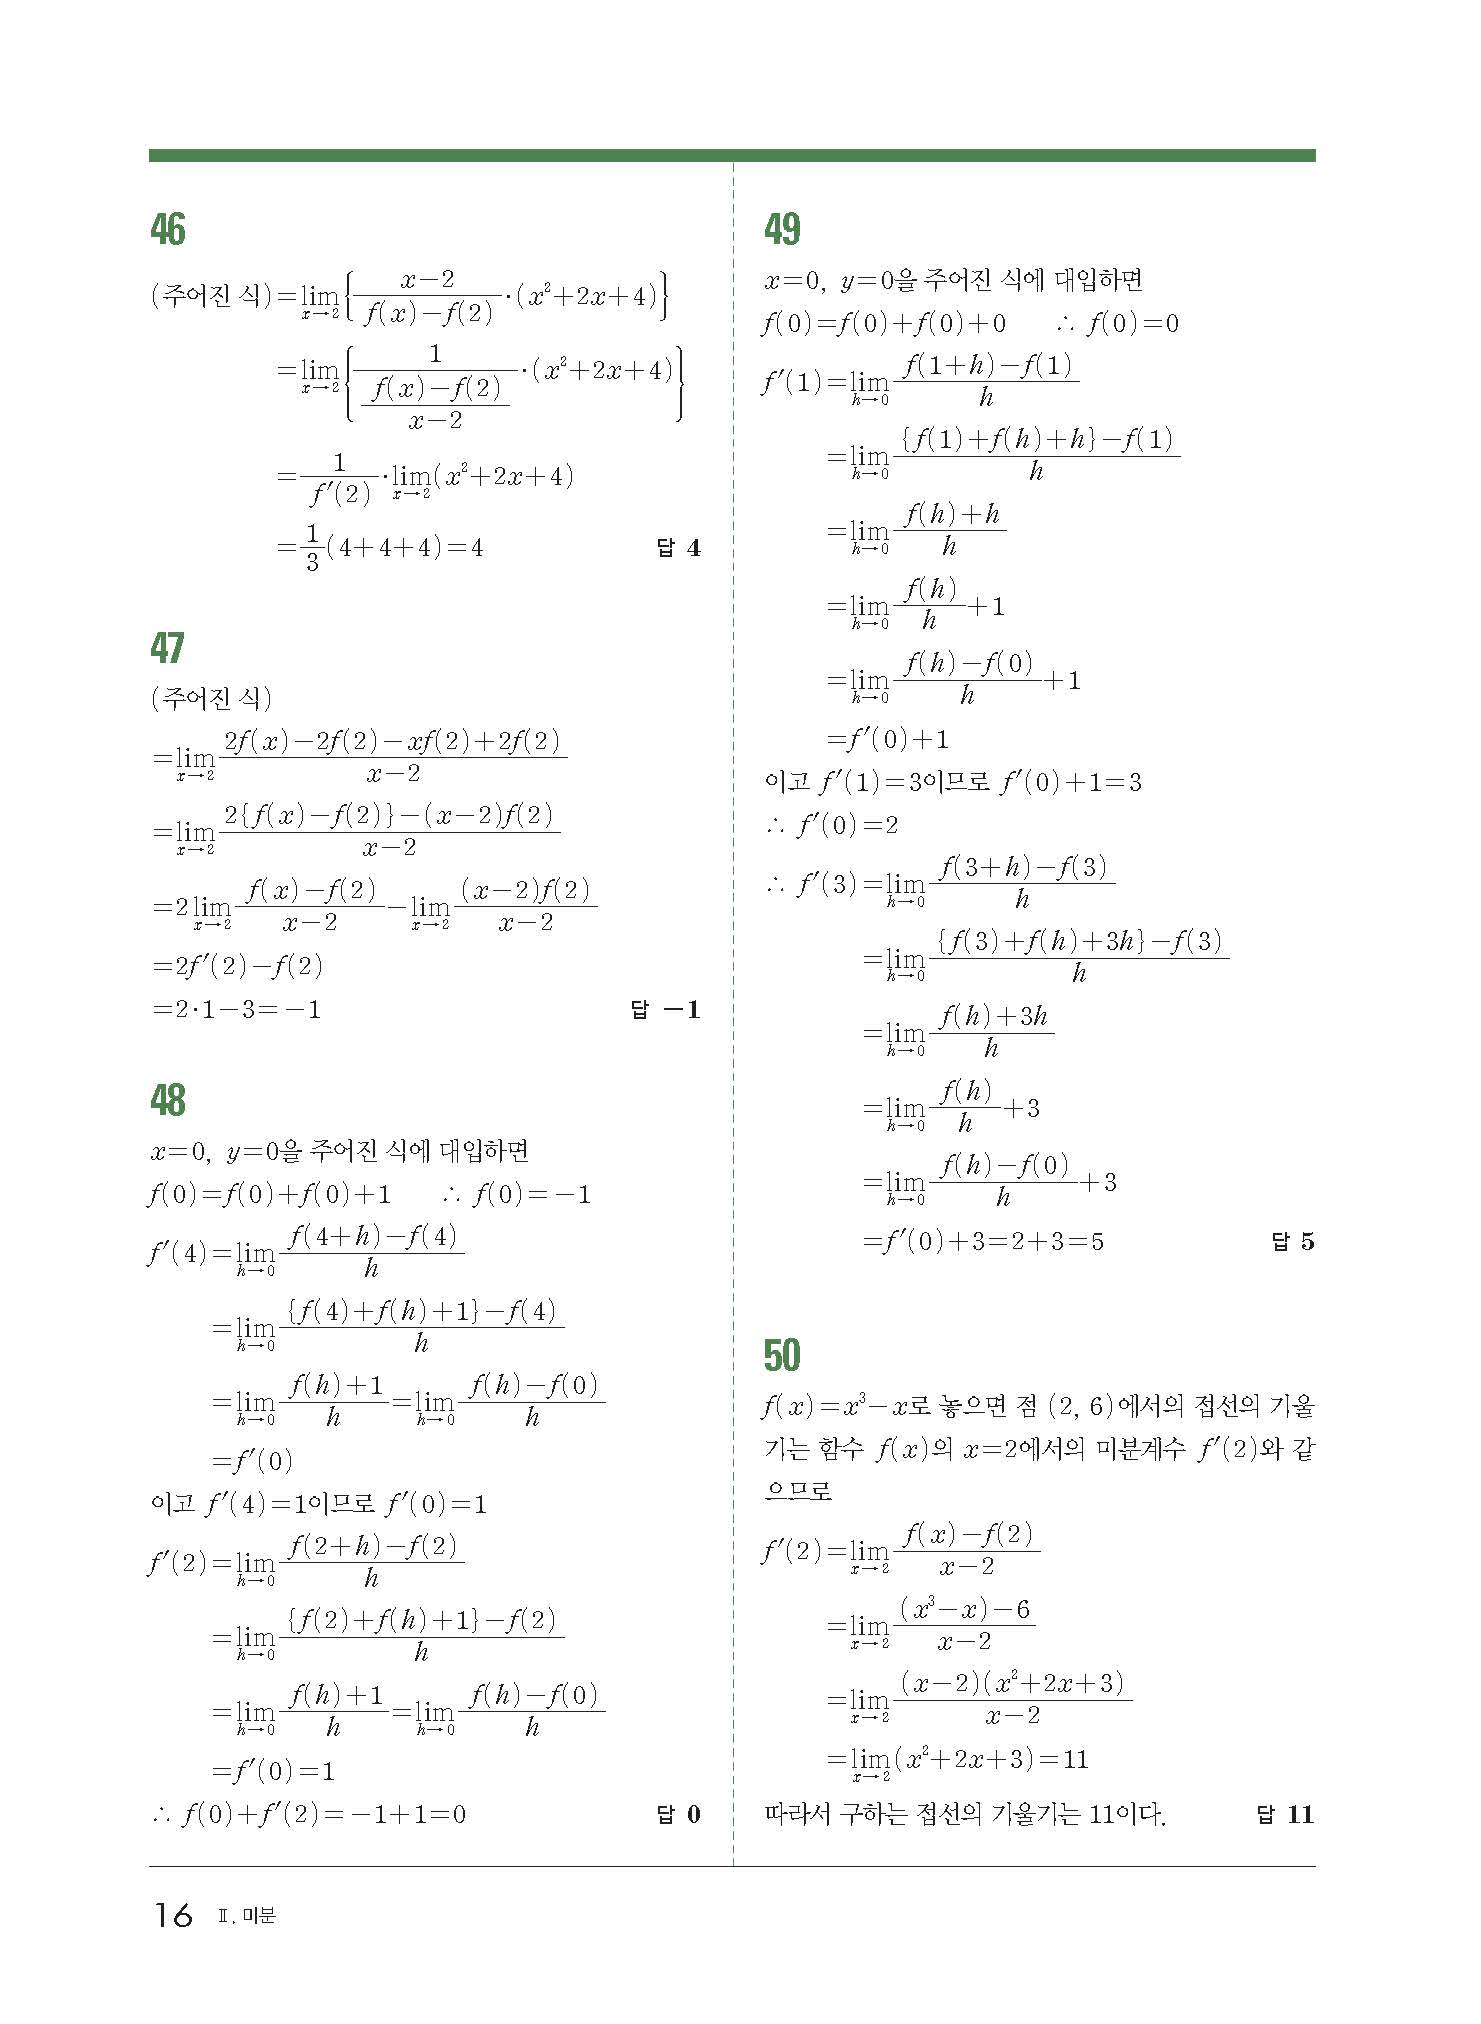 46
(주어진 식)=lim_{x→2}{ \frac{x-2}{f(x)-f(2)}·(x²+2x+4)}
=lim_{x→2}{ \frac{1}{\frac{f(x)-f(2)}{x-2}}·(x²+2x+4)}
=\frac{1}{f′(2)}·lim_{x→2}(x²+2x+4)
=\frac{1}{3}(4+4+4)=4 답 4
47
(주어진 식)
=lim_{x→2}\frac{2f(x)-2f(2)-xf(2)+2f(2)}{x-2}
=lim_{x→2}\frac{2{f(x)-f(2)}-(x-2)f(2)}{x-2}
=2lim_{x→2}\frac{f(x)-f(2)}{x-2}-lim_{x→2}\frac{(x-2)f(2)}{x-2}
=2f′(2)-f(2)
=2·1-3=-1 답 -1
48
x=0, y=0을 주어진 식에 대입하면
f(0)=f(0)+f(0)+1 ∴ f(0)=-1
f′(4)=lim_{h→0}\frac{f(4+h)-f(4)}{h}
=lim_{h→0}\frac{{f(4)+f(h)+1}-f(4)}{h}
=lim_{h→0}\frac{f(h)+1}{h}=lim_{h→0}\frac{f(h)-f(0)}{h}
=f′(0)
이고 f′(4)=1이므로 f′(0)=1
f′(2)=lim_{h→0}\frac{f(2+h)-f(2)}{h}
=lim_{h→0}\frac{{f(2)+f(h)+1}-f(2)}{h}
=lim_{h→0}\frac{f(h)+1}{h}=lim_{h→0}\frac{f(h)-f(0)}{h}
=f′(0)=1
∴ f(0)+f′(2)=-1+1=0 답 0
49
x=0, y=0을 주어진 식에 대입하면
f(0)=f(0)+f(0)+0 ∴ f(0)=0
f′(1)=lim_{h→0}\frac{f(1+h)-f(1)}{h}
=lim_{h→0}\frac{{f(1)+f(h)+h}-f(1)}{h}
=lim_{h→0}\frac{f(h)+h}{h}
=lim_{h→0}\frac{f(h)}{h}+1
=lim_{h→0}\frac{f(h)-f(0)}{h}+1
=f′(0)+1
이고 f′(1)=3이므로 f′(0)+1=3
∴ f′(0)=2
∴ f′(3)=lim_{h→0}\frac{f(3+h)-f(3)}{h}
=lim_{h→0}\frac{{f(3)+f(h)+3h}-f(3)}{h}
=lim_{h→0}\frac{f(h)+3h}{h}
=lim_{h→0}\frac{f(h)}{h}+3
=lim_{h→0}\frac{f(h)-f(0)}{h}+3
=f′(0)+3=2+3=5 답 5
50
f(x)=x³-x로 놓으면 점 (2, 6)에서의 접선의 기울
기는 함수 f(x)의 x=2에서의 미분계수 f′(2)와 같
으므로
f′(2)=lim_{x→2}\frac{f(x)-f(2)}{x-2}
=lim_{x→2}\frac{(x³-x)-6}{x-2}
=lim_{x→2}\frac{(x-2)(x²+2x+3)}{x-2}
=lim_{x→2}(x²+2x+3)=11
따라서 구하는 접선의 기울기는 11이다. 답 11
16 Ⅱ. 미분